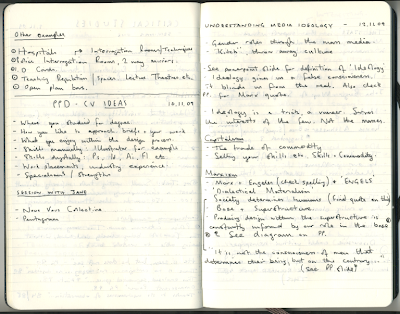 Other Examples
Hospitals → Interrogation Rooms/Techniques
Police Interrogation Rooms, 2 way mirrors.
ID Cards.
Teaching Reputation / Spaces. Lecture Theatres etc.
Open plan bars.
PPD - CV IDEAS 10.11.09
- Where you studied for degree
- How you like to approach briefs + your work
- What you enjoy within the design process
- Skills manually: Illustrator for example
- Skills digitally: Ps, Id, Ai, Fl etc
- Work placements, industry experience.
- Specialised / Strengths
SESSION WITH JANE
- Nous Vous Collective
- Pentagram
UNDERSTANDING MEDIA IDEOLOGY - 12.11.09
- Gender roles through the mass media
- 'Kitch'. throw away culture
- See powerpoint slide for definition of 'Ideology'
Ideology gives us a false consciousness.
it blinds us from the real. Also check
PP. for Marx quote.
- Ideology is a trick, a veneer. Serves
the interests of the few. Not the masses.
Capitalism
- The hands of commodity
- Selling your skills etc. Skills = Commodity.
Marxism
- Marx + Engels (check spelling) + 'ENGELS'
- 'Dialectical Materialism'
- Society determines humans (Find quote on this)
- Base + Superstructure.
- Producing design within the superstructure is
constantly informed by our role in the base
See diagram on PP.
- 'It is not the consciousness of man that
determines their being, but on the contrary...'
(see PP slide)